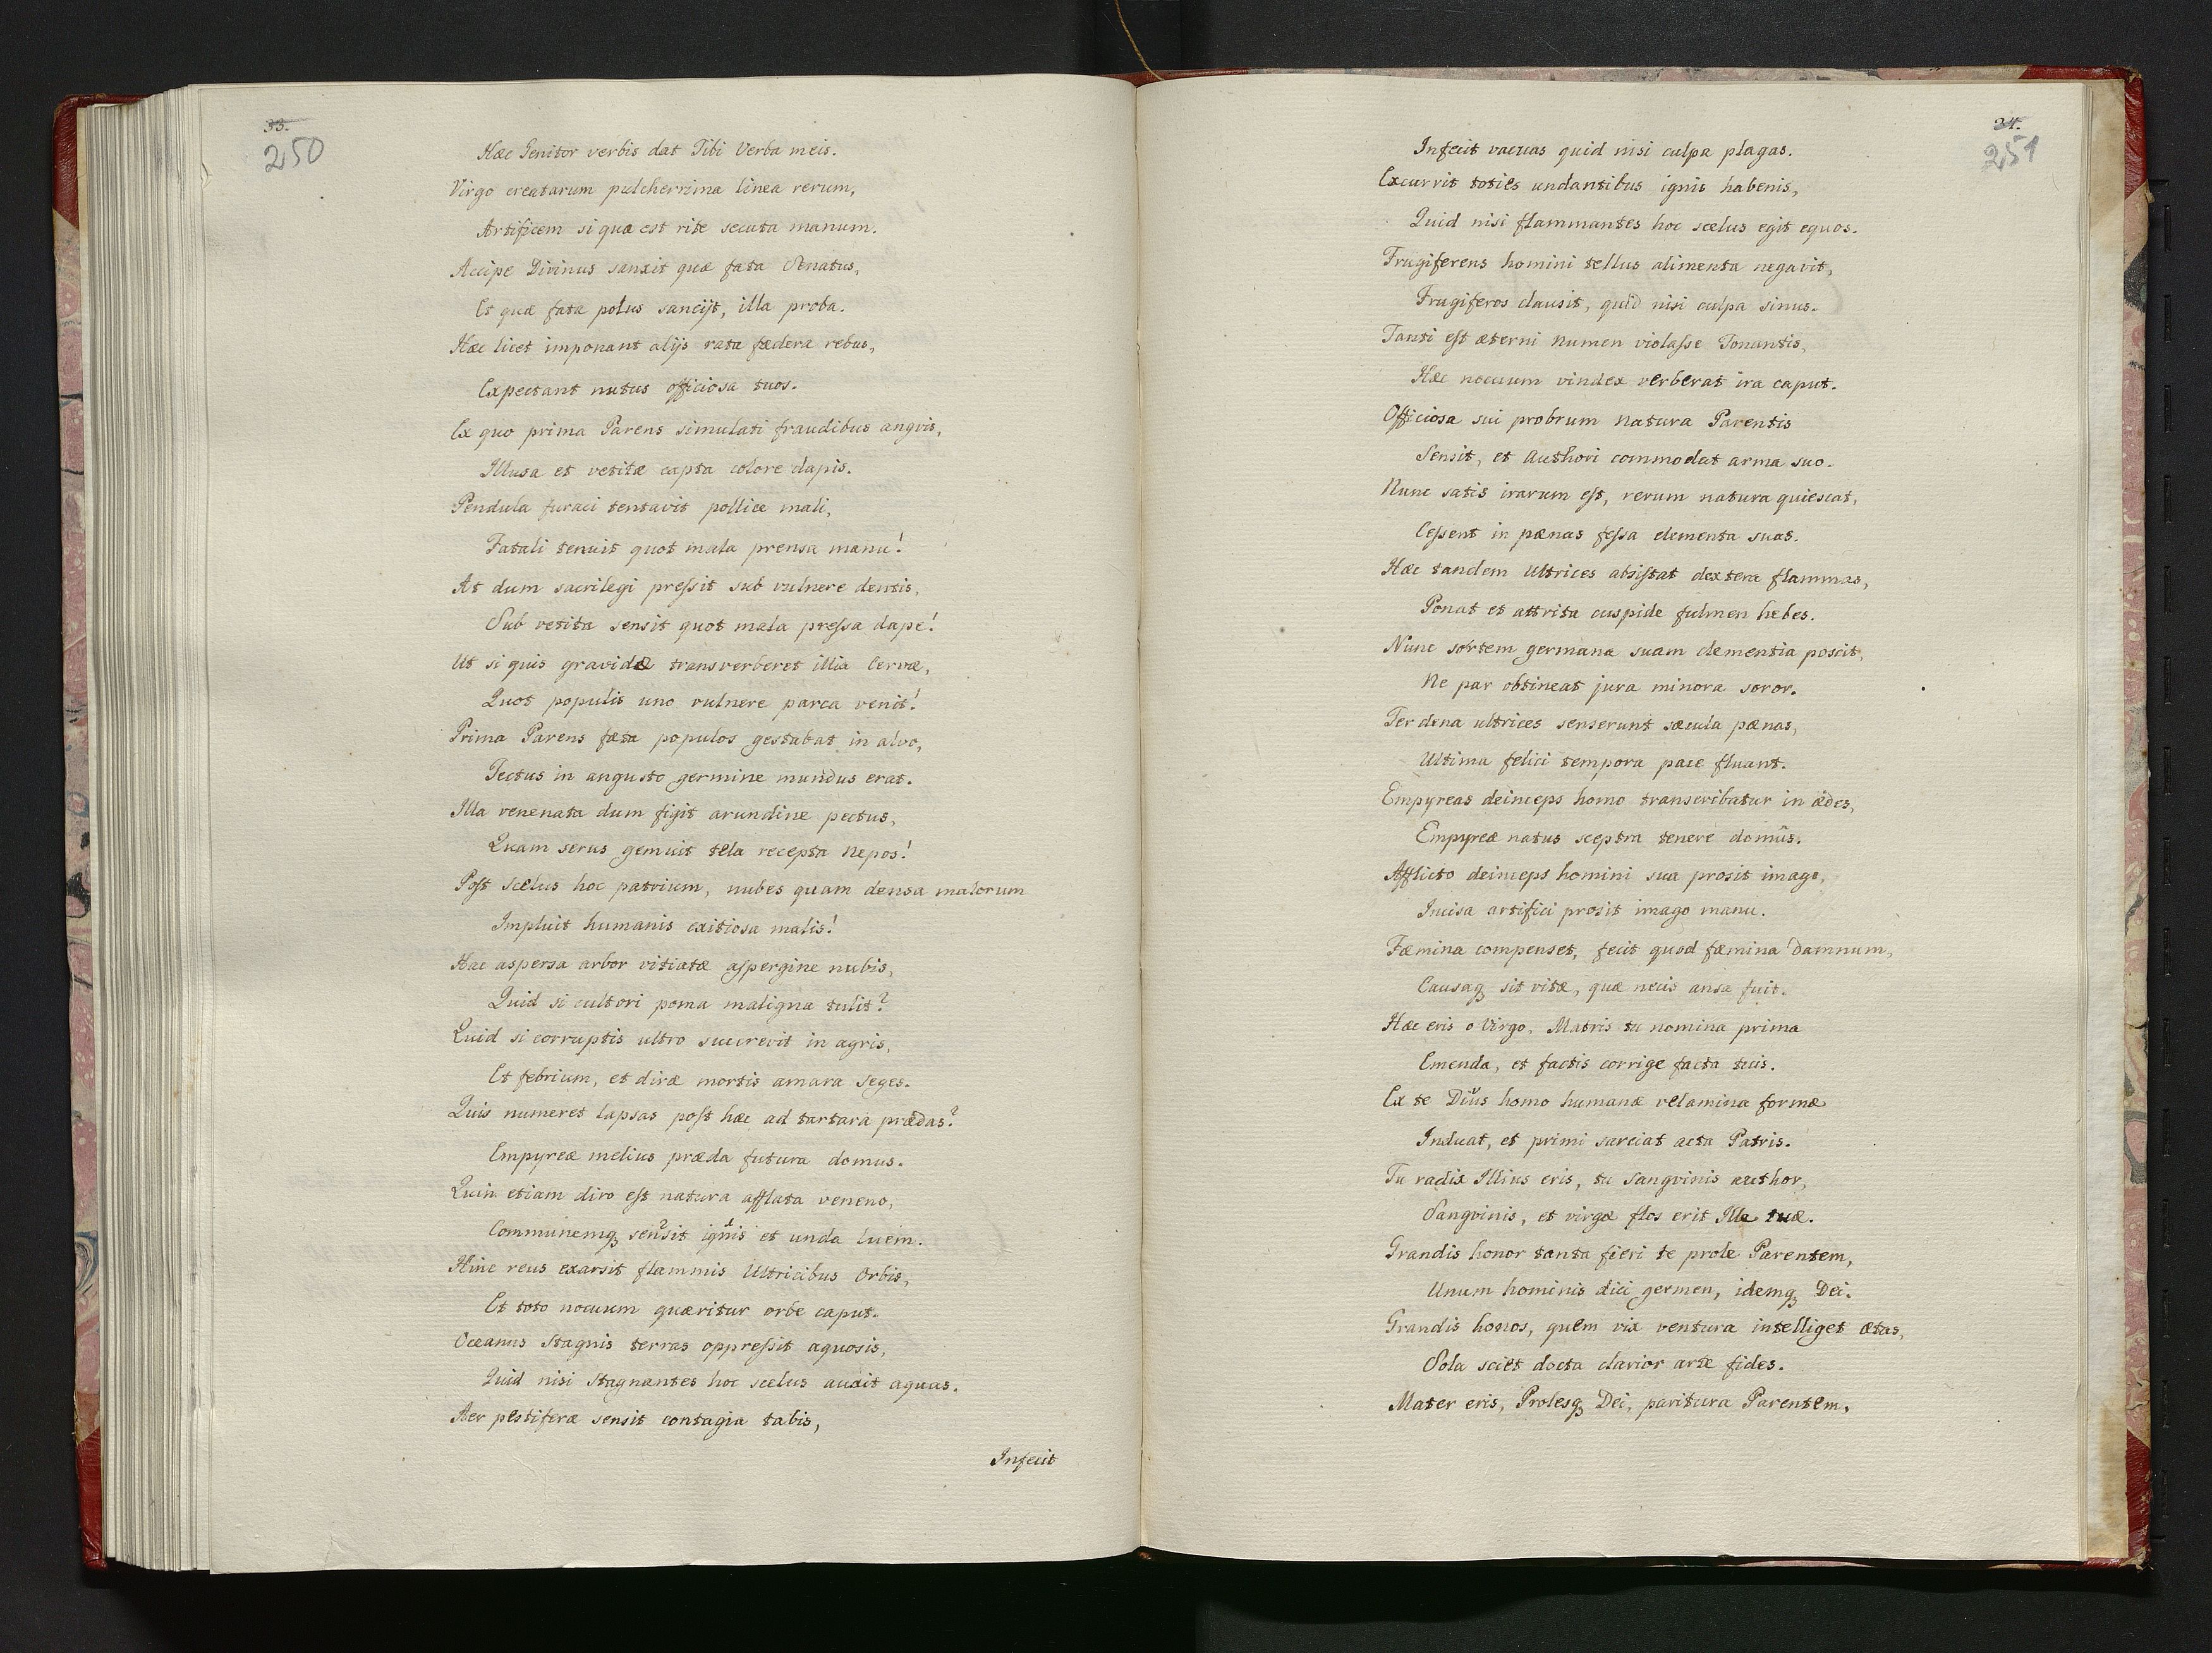 33.
250
Hæc Genitor verbis dat Tibi Verba meis.
Virgo creatarum pulcherrima linea rerum,
Artificem si qua est rite secuta manum.
Accipe Divinus sanxit quæ fata Senatus,
Et quæ fata polus sancijt, illa proba.
Hæc licet imponant alijs rata fædera rebus,
Expectant nutus officiosa tuos.
Ex quo prima Parens simulati fraudibus angvis,
Illusa et vetitæ capta colore dapis.
Pendula furaci tentavit pollice mali,
Fatali tenuit quot mala prensa manu!
At dum sacrilegi preſsit sub vulnere dentis,
Sub vetita sensit quot mala preſsa dape!
Ut si quis gravidæ transverberet illia Cervæ,
Quot populis uno vulnere parca venit!
Prima Parens fæta populos gestabat in alvo,
Tectus in angusto germine mundus erat.
Illa venenata dum figit arundine pectus,
Quam serus gemuit tela recepta Nepos!
Poſt scelus hoc patrium, nubes quam densa malorum
Impluit humanis exitiosa malis!
Hac aspersa arbor vitiatæ aſpergine nubis,
Quid si cultori poma maligna tulit?
Quid si corruptis ultro succrevit in agris,
Et febrium, et diræ mortis amara seges.
Quis numeret lapsas poſt hæc ad tartara prædas?
Empyreæ melius præda futura domus.
Quin etiam diro eſt natura afflata veneno,
Communemq́ sen²sit ig¹nis et unda luem.
Hinc reus exarsit flammis Ultricibus Orbis,
Et toto nocuum quæritur orbe caput.
Oceanus Stagnis terras oppreſsit aquosis,
Quid nisi Stagnantes hoc scelus auxit aquas.
Aer pestiferæ sensit contagia tabis,
Infecit
34.
251
Infecit vacuas quid nisi culpa plagas.
Excurrit toties undantibus ignis habenis,
Quid nisi flammantes hoc scelus egit equos.
Frugiferens homini tellus alimenta negavit,
Frugiferos clausit, quid nisi culpa sinus.
Tanti eſt æterni Numen violaſse Tonantis,
Hæc nocuum vindex verberat ira caput.
Officiosa sui probrum Natura Parentis
Sensit, et Authori commodat arma suo.
Nunc satis irarum eſt, rerum natura quiescat,
Ceſsent in pænas feſsa elementa suas.
Hæc tandem Ultrices absiſtat dextera flammas,
Ponat et attrita cuspide fulmen hebes.
Nunc sortem germana suam clementia poscit,
Ne par obtineat jura minora soror.
Ter dena ultrices senserunt sæcula pænas,
Ultima felici tempora pace fluant.
Empyreas deinceps homo transcribatur in ædes,
Empyreæ natus sceptra tenere domûs.
Afflicto deinceps homini sua prosit imago,
Incisa artifici prosit imago manu.
Fæmina compenset, fecit quod fæmina damnum,
Causaq́ sit vitæ, quæ necis ansa fuit.
Hæc eris o Virgo, Matris tu nomina prima
Emenda, et factis corrige facta tuis.
Ex te Divus homo humanæ velamina formæ
Induat, et primi sarciat acta Patris.
Tu radix Illius eris, tu Sangvinis author,
Sangvinis, et virgæ flos erit Ille tuæ.
Grandis honor tanta fieri te prole Parentem,
Unum hominis dici germen, idemq́ Dei.
Grandis honos, quem vix ventura intelliget ætas,
Sola sciet docta clarior arte fides.
Mater eris, Prolesq́ Dei, paritura Parentem,